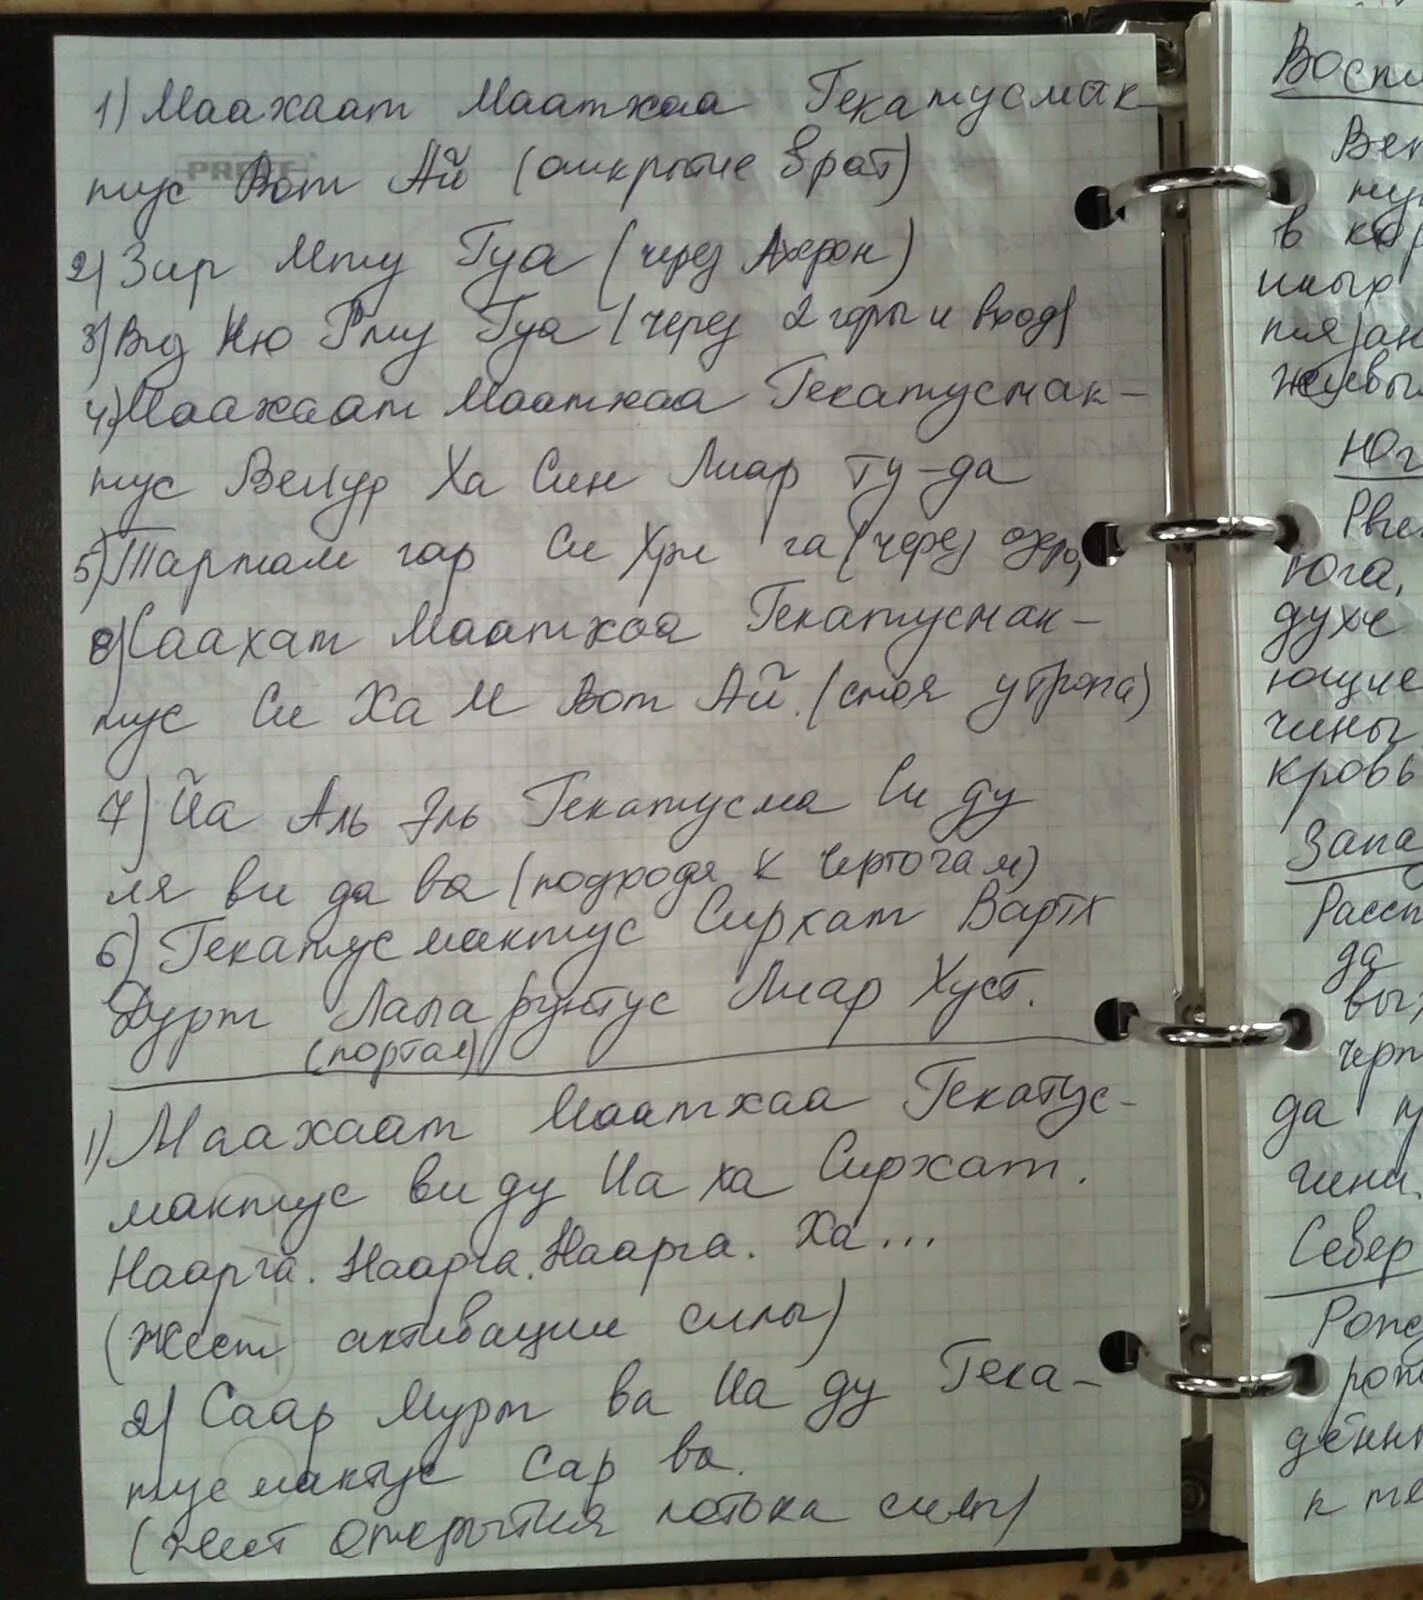 1) Маахаат Маатхаа Гекатусмак
тус Вот Ай (открытие врат)
2) Зир Мту Гуа (через Ахерон)
3) Вид Ню Рту Гуа (через 2 горы и вход)
4) Маахаат Маатхаа Гекатусмак-
тус Велур Ха Син Лиар ту-да
5) Тартам гар Си Хри га (через озеро)
6) Саахат Маатхаа Гекатусмак-
тус Си Ха М Вот Ай. (стоя у трона)
7) Йа Аль Эль Гекатусма Си ду
ля ви да ва (подходя к чертогам)
6) Гекатусмактус Сирхат Вартх
Дурт Лапа рунтус Лиар Хуст.
(портал)
1) Маахаат Маатхаа Гекатус-
мактус ви ду Иа ха Сирхат.
Наарга. Наарга. Наарга. Ха...
(Жест активации силы)
2) Саар Мурт ва Иа ду Гека-
тусмактус Сар ва.
(жест открытия потока силы)
Воспи
Вет
в кор
иных
Юг
Юга,
духе
ющие
чины
кровь
Запа
Расст
да
вых
черт
да п
гина.
Север
рот
дённ
к те